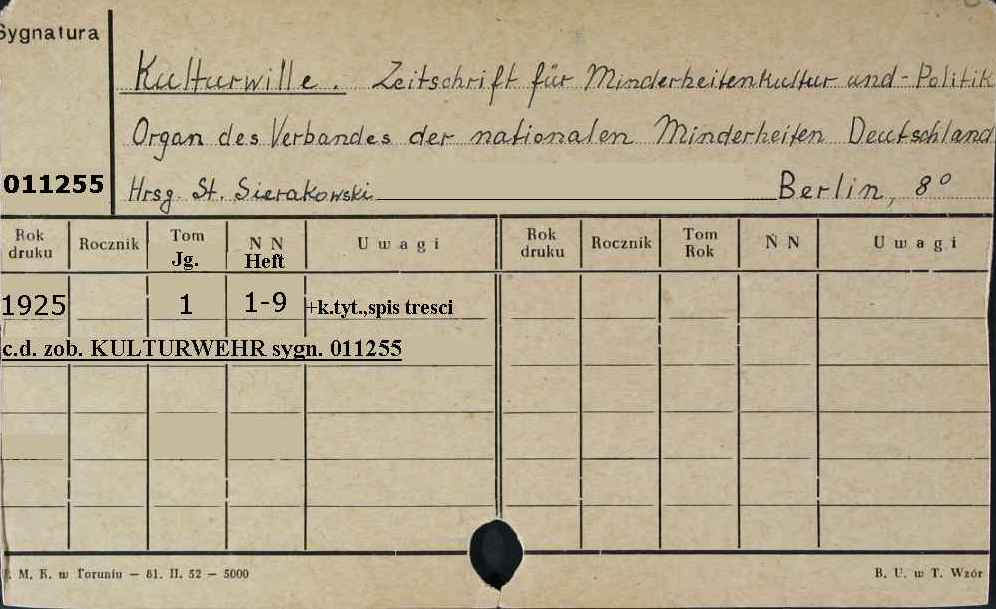 Sygnatura
Kulturwille. Zeitschrift für Minderheitenkultur und - Politik
Organ des Verbandes der nationalen Minderheiten Deutschland
011255 Hrsg. St. Sierakowski Berlin, 8°
Rok druku Rocznik Tom Jg. N N Heft Uwagi Rok druku Rocznik Tom Rok N N Uwagi
1925 1 1-9 +k.tyt.,spis tresci
c.d. zob. KULTURWEHR sygn. 011255
P. M. K. w Toruniu — 81. II. 52 — 5000 B. U. w T. Wzór